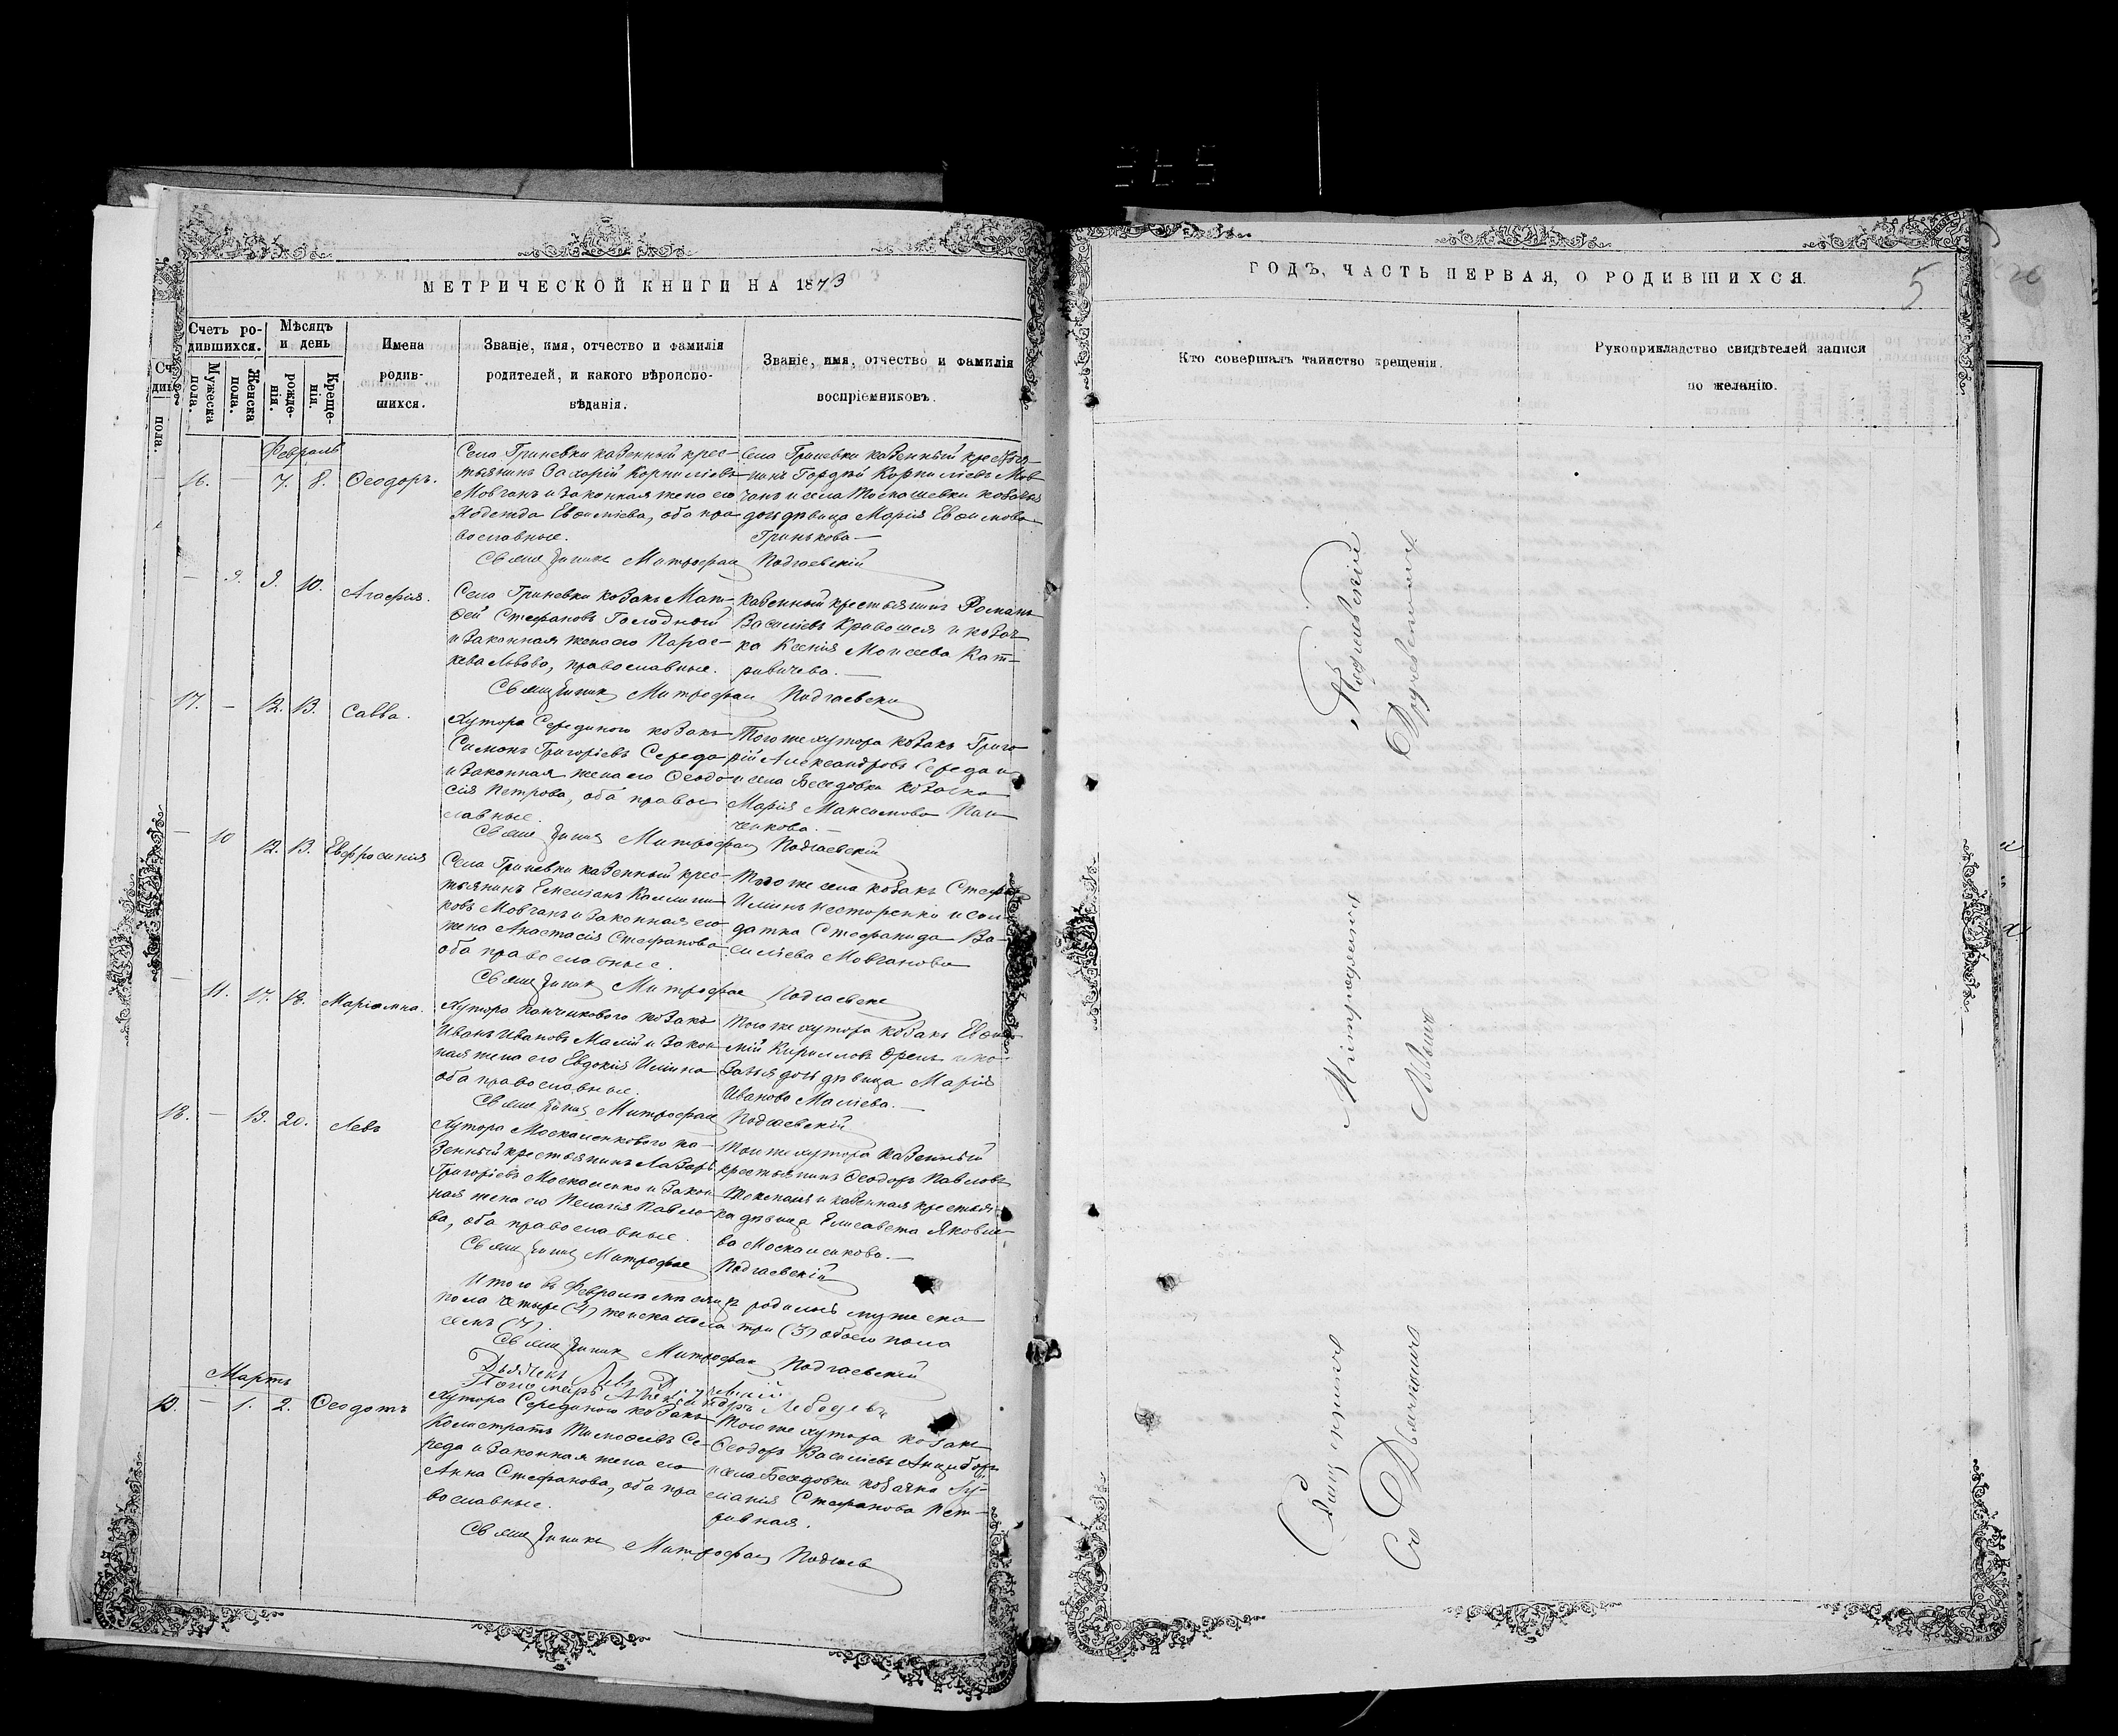 365
МЕТРИЧЕСКОЙ КНИГИ НА 1873
Счетъ ро-
дившихся.
Мѣсяцъ
и день
Мужеска
пола.
Женска
пола.
рожде-
нія.
Креще-
нія.
Имена
родив-
шихся.
Званіе, имя, отчество и фамилія
родителей, и какого вѣроиспо-
вѣданія.
Званіе, имя, отчество и фамилія
воспріемниковъ.
Февраль
16. — 7. 8. Ѳеодоръ.
Села Гриневки казенный крес-
тьянинъ Захарій Корниліевъ
Мовчанъ и законная жена его
Надежда Евѳиміева, оба пра
вославные.
Села Гриневки казенный крестья-
нинъ Гордѣй Корниліевъ Мов
чанъ и села козачья
дочь дѣвица Марія Евѳимова
Гринькова —
Священникъ Митрофанъ Подгаевскій
— 9. 9. 10. Агафія.
Села Гриневки козакъ Мат-
ѳей Стефановъ Голодный
и законная жена его Парас-
кева Львова, православные.
Казенный крестьянинъ Романъ
Василіевъ Кривошея и козач
ка Ксенія Моисеева Кат-
ривичева. —
Священникъ Митрофанъ Подгаевскій
17. — 12. 13. Савва.
Хутора Середина козакъ
Симонъ Григоріевъ Середа
и законная жена его Ѳеодо
сія Петрова, оба право
славные.
Того же хутора козакъ Григо
рій Александровъ Середа и
села Беседовки козачка
Марія Максимова Пан
ченкова. —
Священникъ Митрофанъ Подгаевскій
— 10 12. 13. Евфросинія
Села Гриневки казенный крес-
тьянинъ Емеліанъ
Мовчанъ и законная его
жена Анастасія Стефанова
оба православные.
Того же села козакъ Стефанъ
Илiинъ Несторенко и сол-
датка Стефанида Ва-
силіева Мовчанова
Священникъ Митрофанъ Подгаевскій
— 11. 17. 18. Маріамна.
Хутора Панченкового козакъ
Иванъ Ивановъ Малій и закон
ная жена его Евдокія Ильина
оба православные.
Того же хутора козакъ Евѳи
мій Кирилловъ Орелъ и ко-
зачья дочь дѣвица Марія
Иванова Маліева. —
Священникъ Митрофанъ Подгаевскій
18. — 19. 20. Левъ
Хутора Москаленкового ка-
зенный крестьянинъ Лазарь
Григоріевъ Москаленко и закон
ная жена его Пелагія Павло-
ва, оба православные.
Того же хутора казенный
крестьянинъ Ѳеодоръ Павловъ
и казенная крестьян-
ка дѣвица Елисавета Яковле-
ва Москаленкова. —
Священникъ Митрофанъ Подгаевскій
Итого въ Февралѣ мѣсяцѣ родилось мужеска
пола четыре (4) женска пола три (3) обоего пола
семь (7).
Священникъ Митрофанъ Подгаевскій
Дьячекъ Левъ
Пономарь Лебедевъ
Мартъ
19. — 1. 2. Ѳеодотъ
Хутора Середина козакъ
Калистратъ Тимоѳеевъ Се-
реда и законная жена его
Анна Стефанова, оба пра
вославные.
Того же хутора козакъ
Ѳеодоръ Василіевъ Анцыборъ
и села Беседовки козачка Іу-
ліанія Стефанова Пет-
ривная.
Священникъ Митрофанъ Подгаев
ГОДЪ, ЧАСТЬ ПЕРВАЯ, О РОДИВШИХСЯ.
5
Кто совершалъ таинство крещенія.
Рукоприкладство свидѣтелей записи
по желанію.
Священникъ Митрофанъ Подгаевскій
Съ Дьячкомъ Львомъ